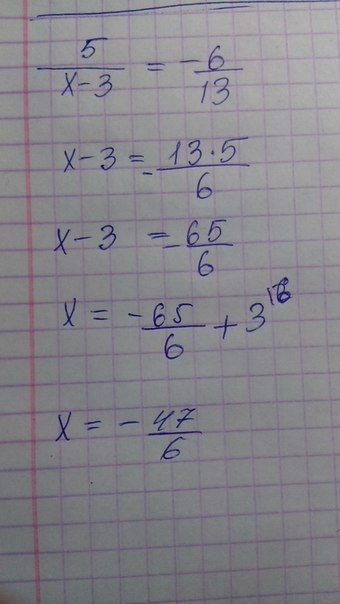 5/(x-3) = -6/13
x-3 = -13·5/6
x-3 = -65/6
x = -65/6 + 3
x = -47/6